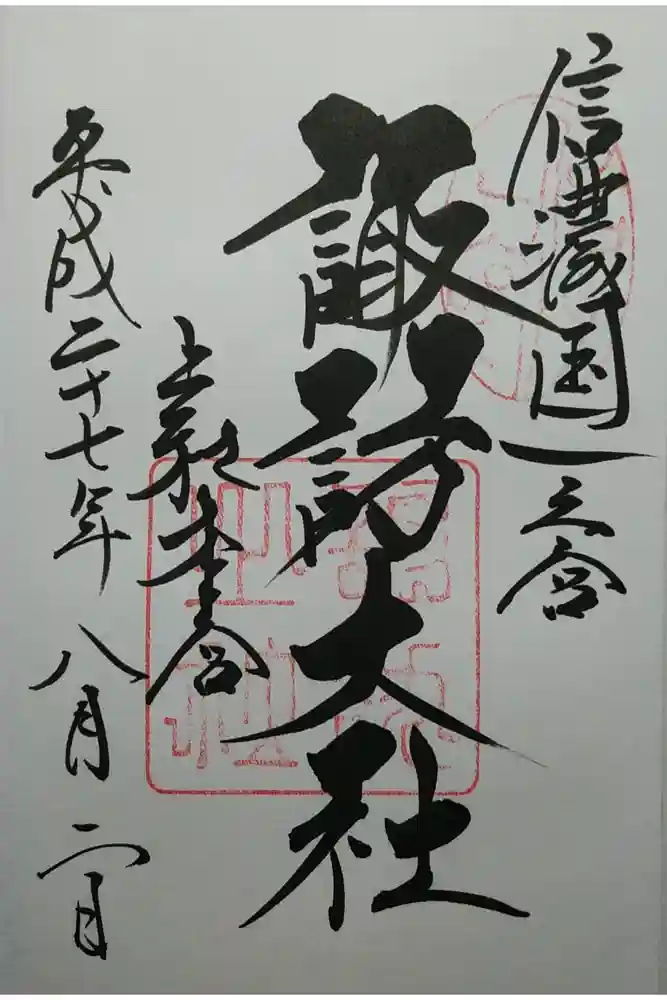 信濃国一之宮
諏訪大社
上社本宮
平成二十七年八月二日